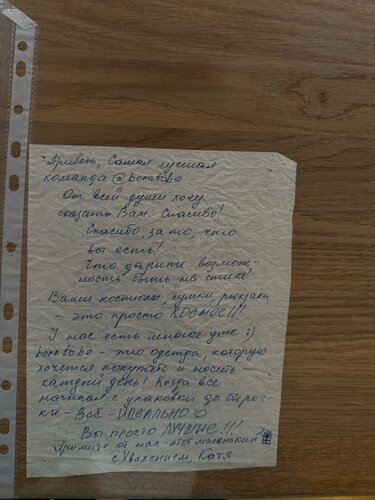 Привет, Самая лучшая
команда @borntobe
От всей души хочу
сказать Вам, Спасибо!
Спасибо, за то, что
вы есть!
Что дарите возмож-
ность быть на стиле!
Ваши костюмы, сумки, рюкзаки
– это просто КОСМОС!!!
У нас есть многое уже :)
borntobe – это одежда, которую
хочется покупать и носить –
каждый день! Когда все...
начиная с упаковки до бироч-
ки – Всё – ИДЕАЛЬНО
Вы просто ЛУЧШИЕ!!!
Примите от нас этот маленький
с Уважением, Катя